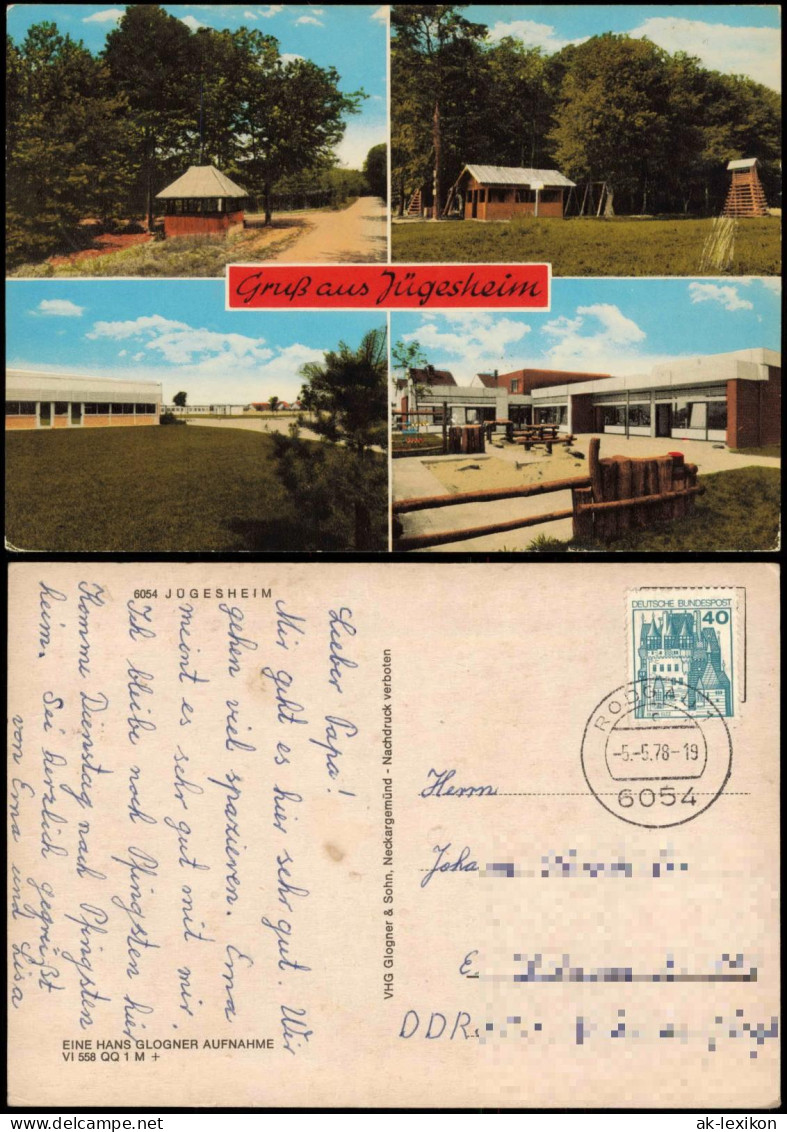 Gruß aus Jügesheim
6054 JÜGESHEIM
Lieber Papa!
Mir geht es hier sehr gut. Wir
gehen viel spazieren. Erna
meint es sehr gut mit mir.
Ich bleibe noch Pfingsten hier
Komme Dienstag nach Pfingsten
heim. Sei herzlich gegrüßt
von Erna und Lisa
EINE HANS GLOGNER AUFNAHME
VI 558 QQ 1 M +
VHG Glogner & Sohn, Neckargemünd - Nachdruck verboten
DEUTSCHE BUNDESPOST
40
RODGAU 1
c
-5.-5.78-19
6054
Herrn
DDR
ak-lexikon.com